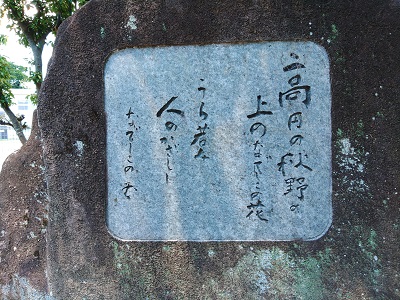 高円の秋野の
上のなでしこの花
うら若み
人のかざしし
なでしこの花